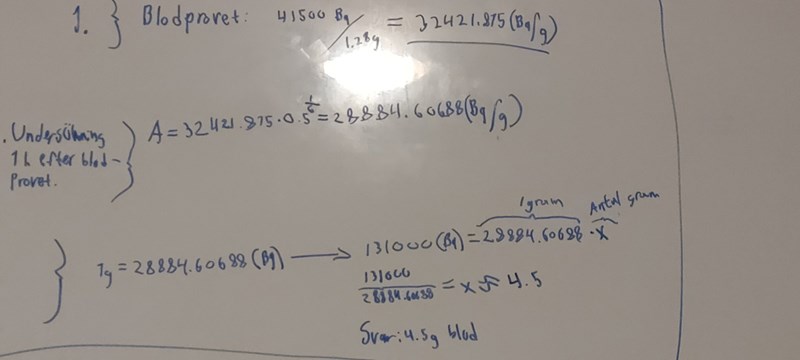 1. } Blodprovet: 41500 Bq / 1.28g = 32421.875 (Bq/g)
. Undersökning
1 h efter blod-
Provet.
} A = 32421.875 · 0.5^(1/6) = 28884.60688 (Bq/g)
1 gram Antal gram
} 1g = 28884.60688 (Bq) → 131000 (Bq) = 28884.60688 · x
131000 / 28884.60688 = x ≈ 4.5
Svar: 4.5g blod